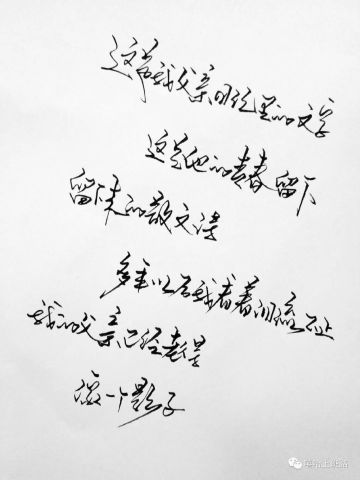 这是我父亲日记里的文字
这是他的青春留下
留下来的散文诗
多年以后我看着泪流不止
我的父亲已经老得
像一个影子